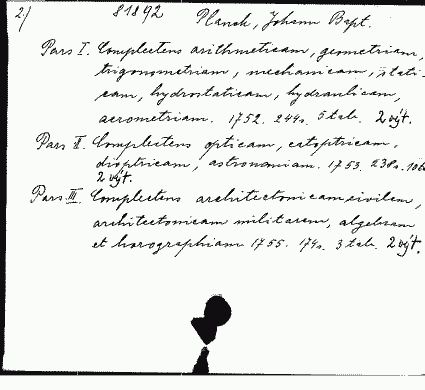 2/ 81892 Planck, Johann Bapt.
Pars I. Complectens arithmeticam, geometriam,
trigonometriam, mechanicam, stati-
cam, hydrostaticam, hydraulicam,
aerometriam. 1752. 244s. 5 tab. 2 výt.
Pars II. Complectens opticam, catoptricam,
dioptricam, astronomiam. 1753. 238s. 10tab
2 výt.
Pars III. Complectens architectonicam civilem,
architectonicam militarem, algebram
et horographiam 1755. 174s. 3 tab. 2 výt.